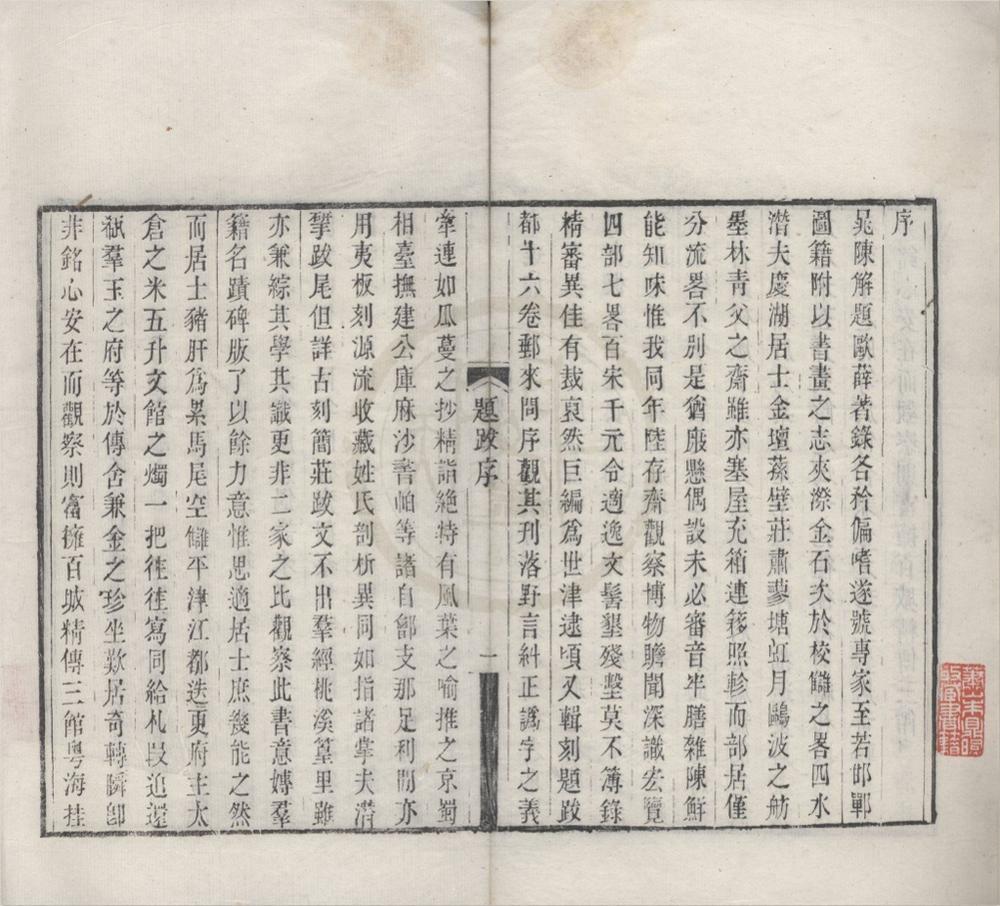 序
晁陳解題歐薛著錄各矜偏嗜遂號專家至若邯鄲
圖籍附以書畫之志夾漈金石次於校讎之畧四水
潛夫慶湖居士金壇蓀壁莊肅蓼塘虹月鷗波之舫
墨林靑父之齋雖亦塞屋充箱連簃照軫而部居僅
分流畧不別是猶廄懸偶設未必審音半膳雜陳鮮
能知味惟我同年陸存齋觀察博物贍聞深識宏覽
四部七畧百宋千元令適逸文髻墾殘墼莫不簿錄
精審異佳有裁裒然巨編爲世津逮頃又輯刻題跋
都十六卷郵來問序觀其刊落野言糾正譌字之義
題跋序
一
牽連如瓜蔓之抄精詣絕特有風葉之喻推之京蜀
相臺撫建公庫麻沙書帕等諸自鄶支那足利閒亦
用夷板刻源流收藏姓氏剖析異同如指諸掌夫潛
擘跋尾但詳古刻簡莊跋文不出羣經桃溪篁里雖
亦兼綜其學其識更非二家之比觀察此書意媾羣
籍名蹟碑版了以餘力意惟思適居士庶幾能之然
而居士豬肝爲累馬尾空讎平津江都迭更府主太
倉之米五升文館之燭一把徃徃寫同給札叚追還
瓻羣玉之府等於傳舍兼金之珍坐歎居奇轉瞬卽
非銘心安在而觀察則富擁百城精傳三館粵海挂